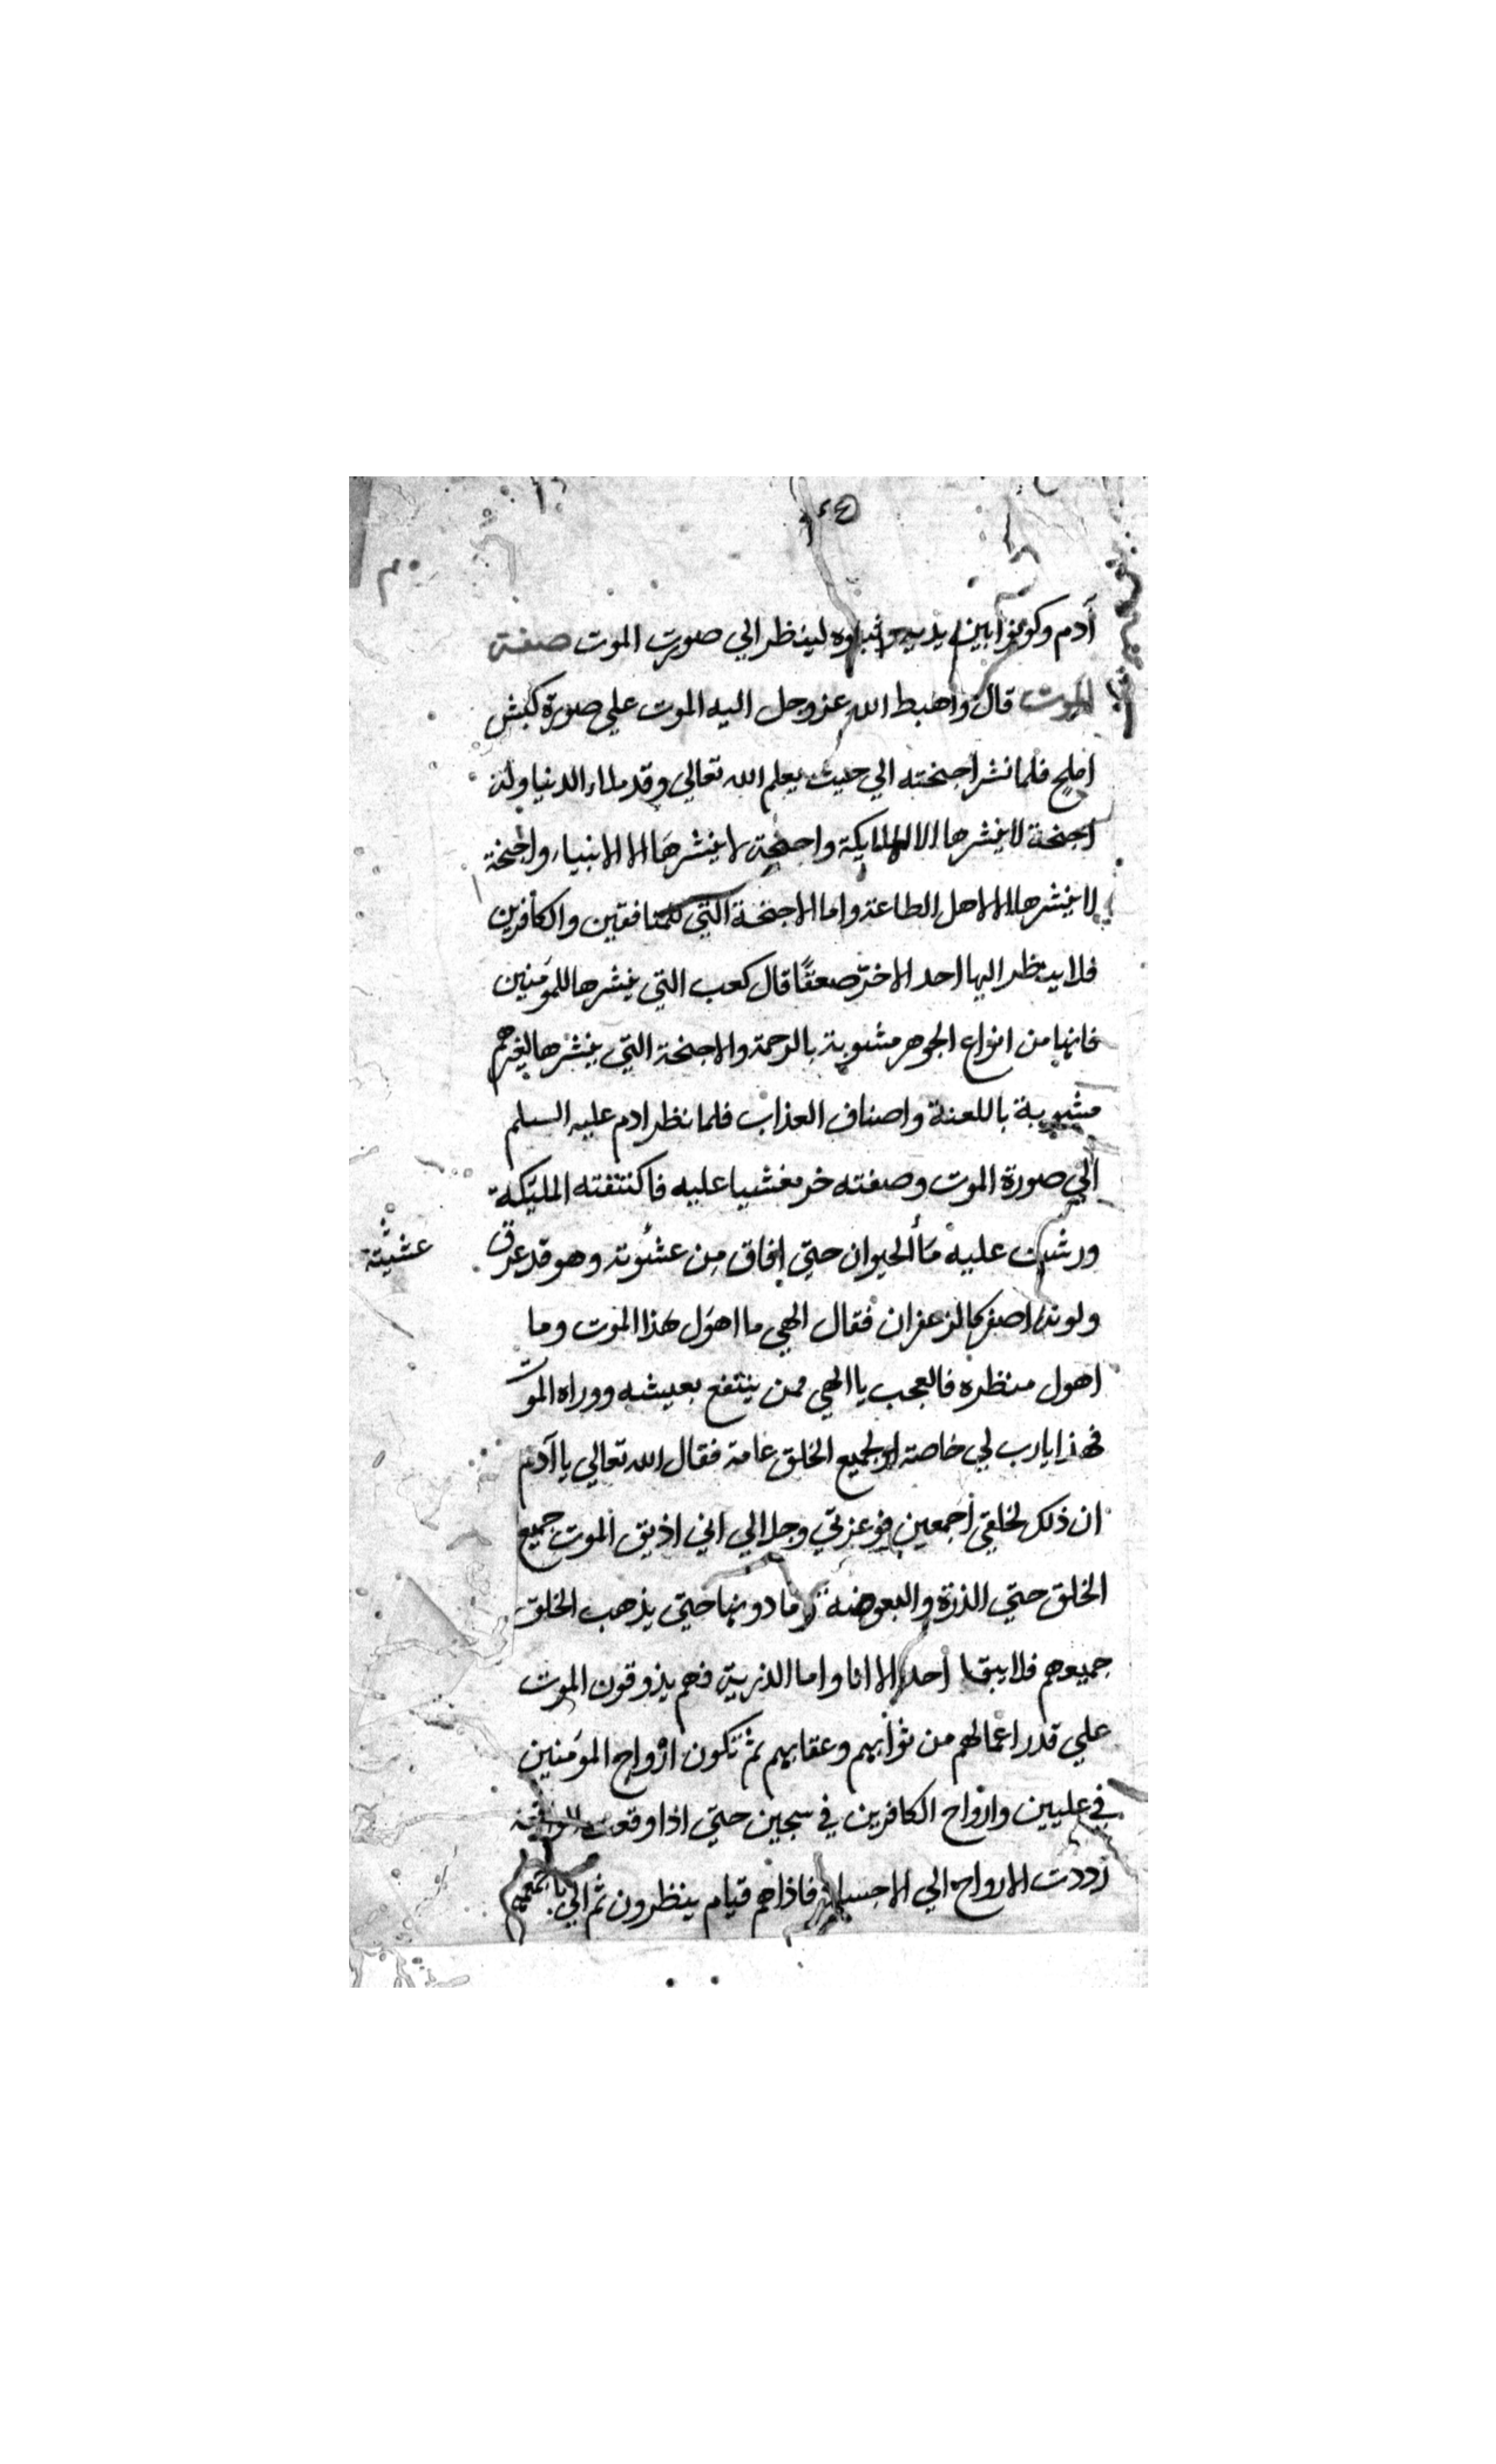 آدم وكونوا بين يديه وثبتوه لينظر الي صورت الموت صفة
الموت قال واهبط الله عز وجل اليه الموت علي صورة كبش
املح فلما نشر اجنحته الي حيث يعلم الله تعالي وقد ملاء الدنيا وله
اجنحة لا ينشرها الا للملايكة واجنحة لا ينشرها الا للانبياء واجنحة
لا ينشرها الا لاهل الطاعة واما الاجنحة التي للمنافقين والكافرين
فلا ينظر اليها احد الا خرّ صعقًا قال كعب التي ينشرها للمومنين
فانها من انواع الجوهر مشوبة بالرحمة والاجنحة التي ينشرها لغيرهم
مشوبة باللعنة واصناف العذاب فلما نظر ادم عليه السلم
الي صورة الموت وصفته خر مغشيا عليه فاكتنفته المليكة
ورشت عليه مأ الحيوان حتي افاق من عشوته وهو قد عرق
عشيته
ولونه اصفر كالزعفران فقال الهي ما اهول هذا الموت وما
اهول منظره فالعجب يا الهي ممن ينتفع بعيشه ووراه الموت
فهذا يا رب لي خاصة او لجميع الخلق عامة فقال الله تعالي يا آدم
ان ذلك لخلقي اجمعين فوعزتي وجلالي اني اذيق الموت جميع
الخلق حتي الذرة والبعوضة وما دونها حتي يذهب الخلق
جميعهم فلا يبقا احد الا انا واما الذرية فهم يذوقون الموت
علي قدر اعمالهم من ثوابهم وعقابهم ثم تكون ارواح المومنين
في عليين وارواح الكافرين في سجين حتي اذا وقعت الواقعة
رددت الارواح الي الاجساد فاذا هم قيام ينظرون ثم الي